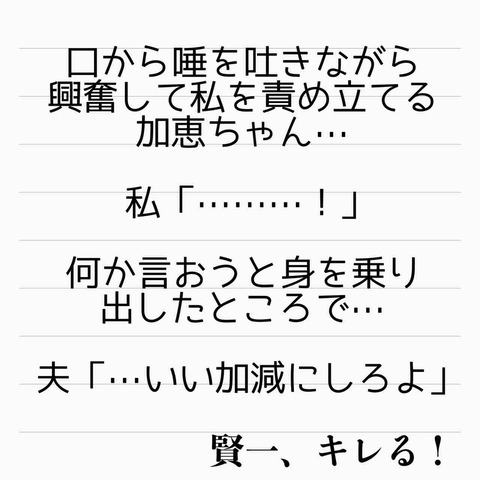 口から唾を吐きながら
興奮して私を責め立てる
加恵ちゃん…
私「………！」
何か言おうと身を乗り
出したところで…
夫「…いい加減にしろよ」
賢一、キレる！